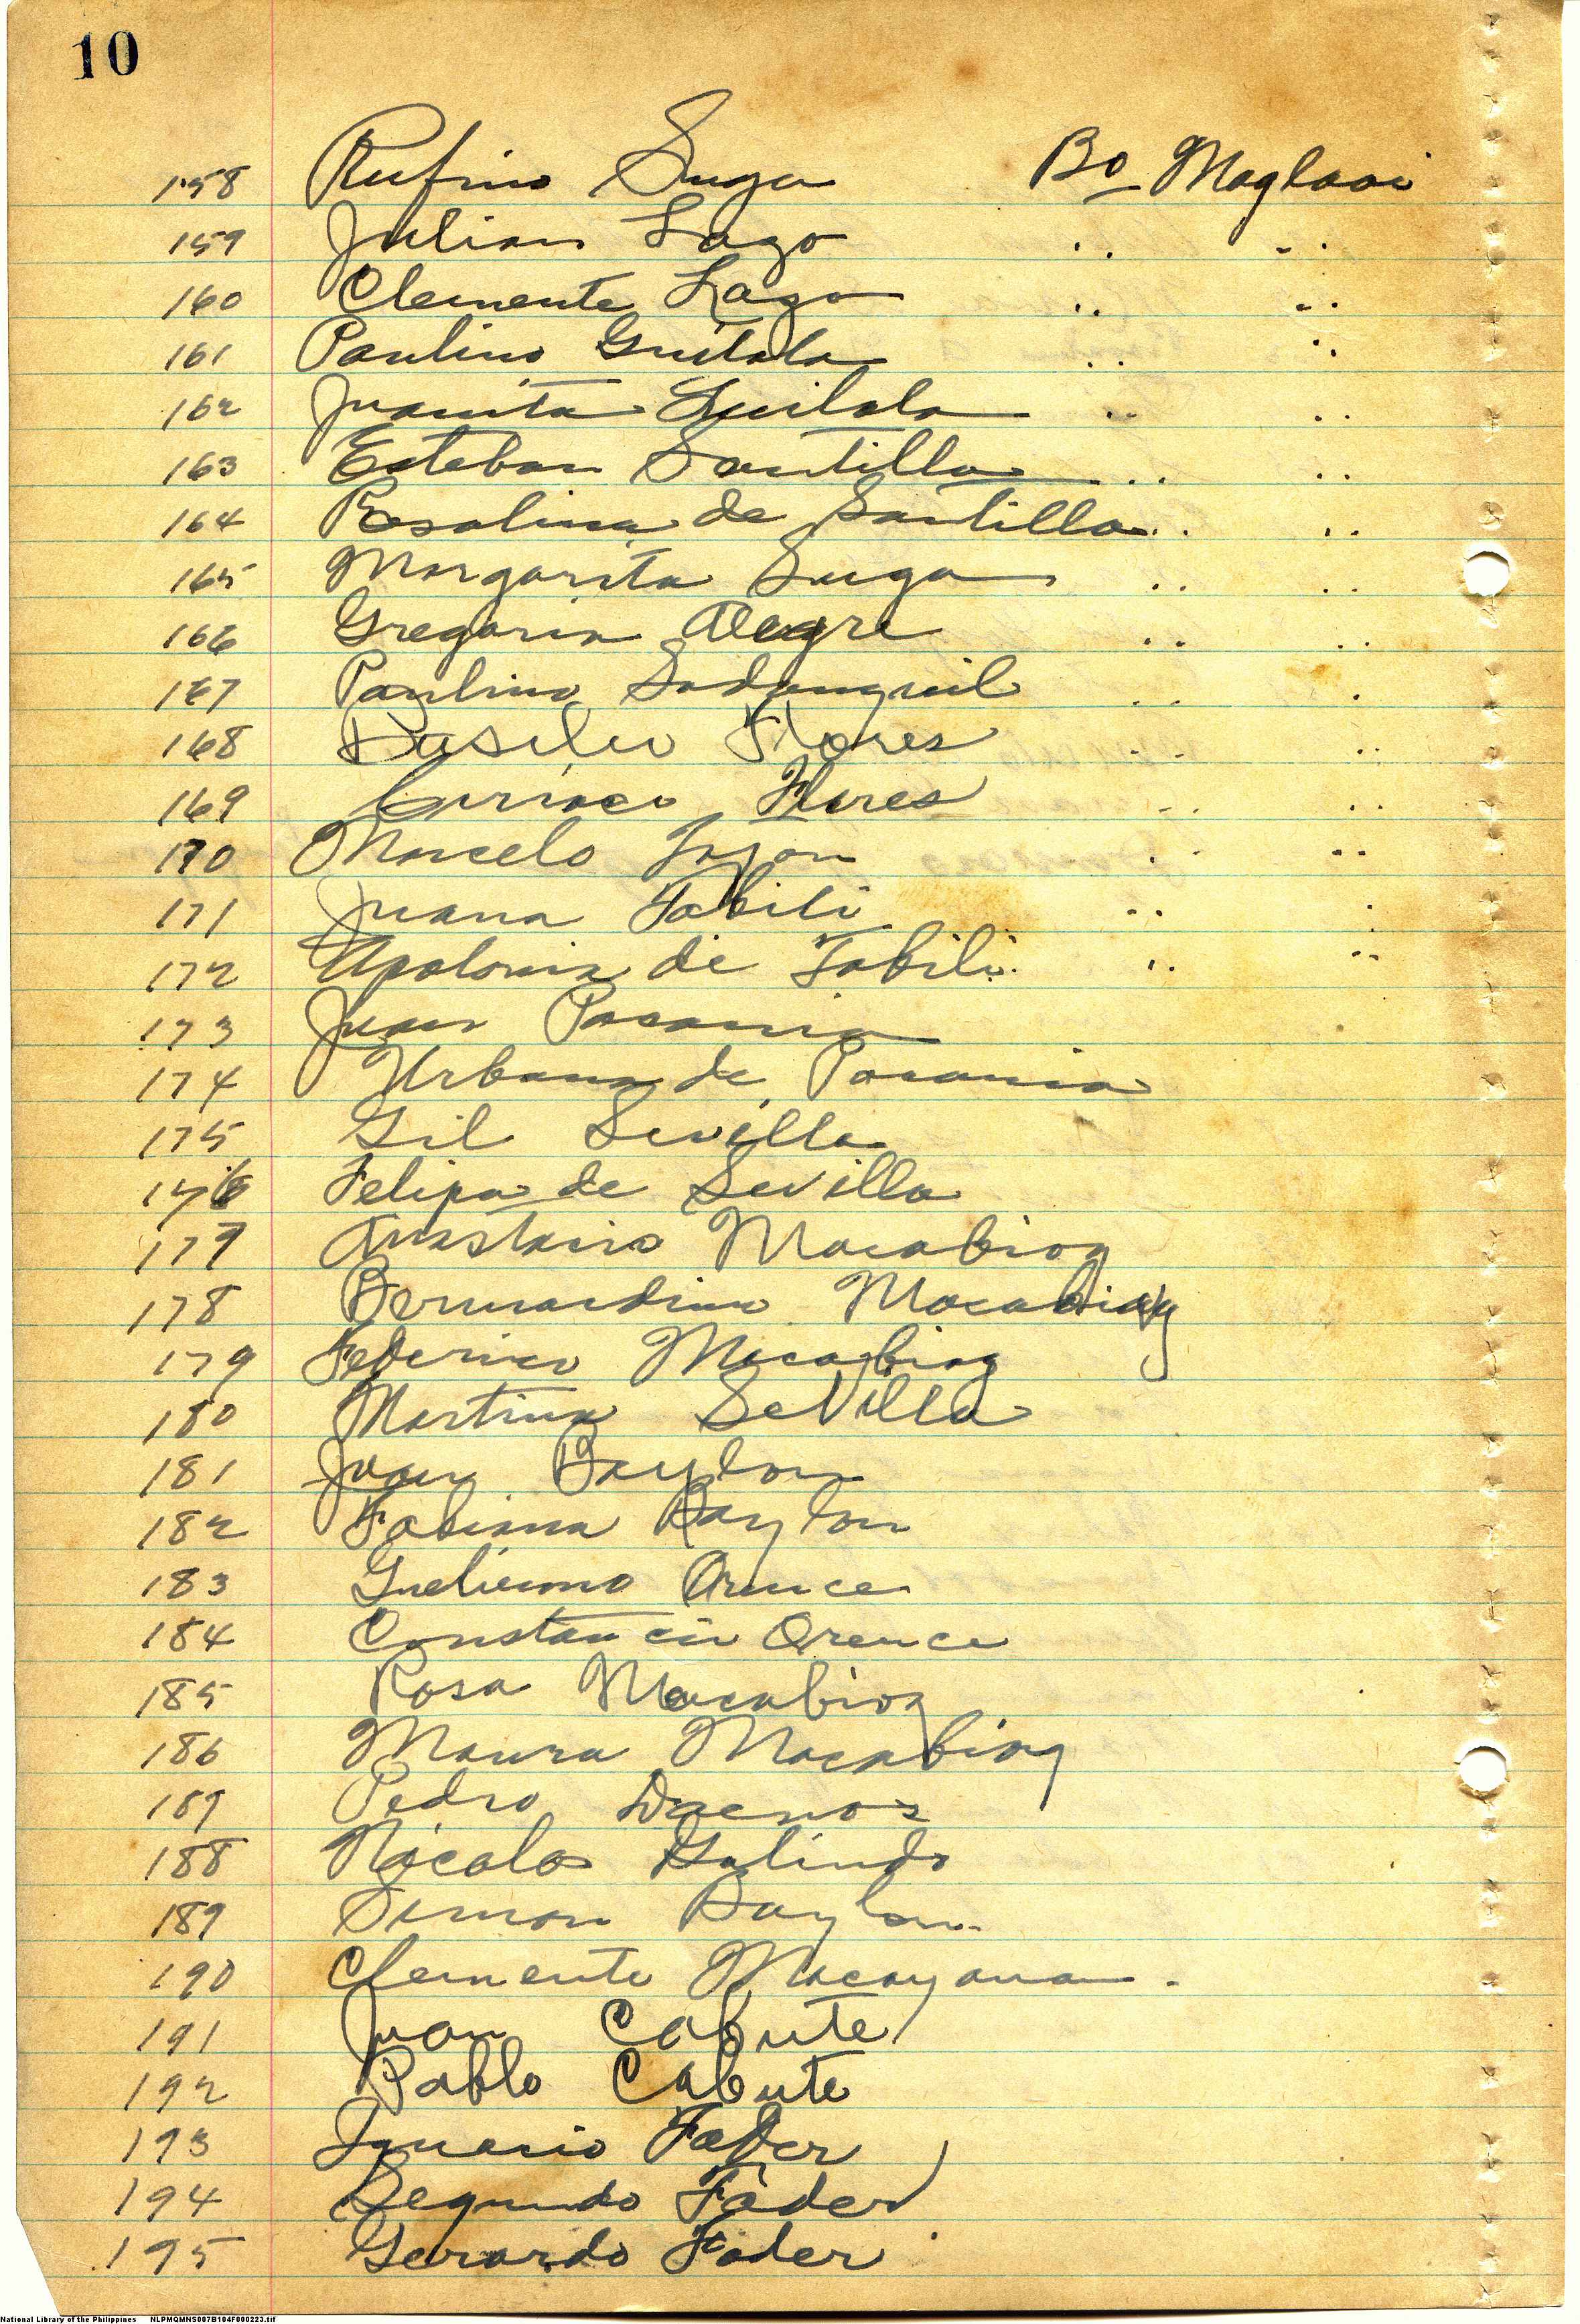 10
158 Rufino Suga Bo Maglaoi
159 Julian Lazo .. ..
160 Clemente Lazo .. ..
161 Paulino Guilala .. ..
162 Juanita Guilala .. ..
163 Esteban Santilla .. ..
164 Rosalina de Santilla .. ..
165 Margarita Suga .. ..
166 Gregoria Alegre .. ..
167 Paulino .. .
168 Basilio Flores .. ..
169 Ciriaco Flores .. ..
170 Marcelo .. ..
171 Juana Tabili .. ..
172 Apolonia de Tabili .. ..
173 Juan Pacania
174 Urbana de Pacania
175 Gil Sevilla
176 Felipa de Sevilla
177 Anastacio Macabiog
178 Bernardino Macabiog
179 Federico Macabiog
180 Martina Sevilla
181 Juan Baylon
182 Fabiana Baylon
183 Orence
184 Constancio Orence
185 Rosa Macabiog
186 Maura Macabiog
187 Pedro
188 Nicolas Galindo
189 Simon Baylon
190 Clemente Macayana
191 Juan Cabute
192 Pablo Cabute
193 Ignacio Fader
194 Segundo Fader
195 Gerardo Fader
National Library of the Philippines NLPMQMNS007B104F000223.tif